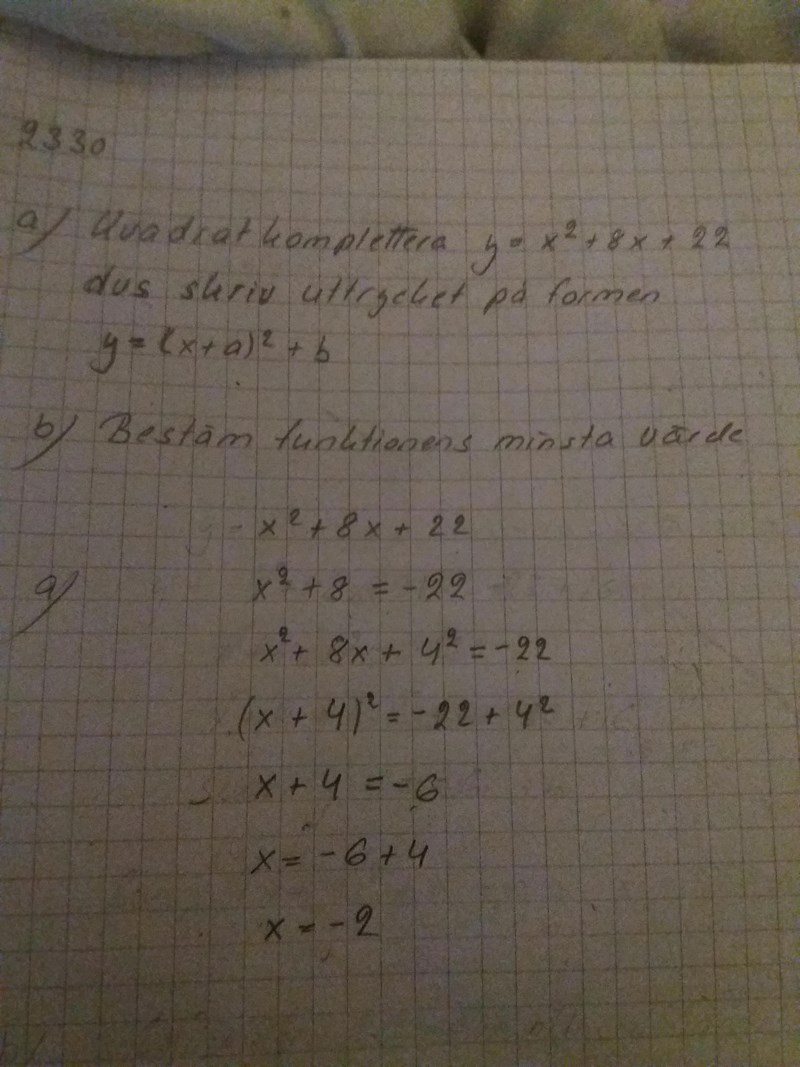 2330
a) Kvadratkomplettera y = x² + 8x + 22
dvs skriv uttrycket på formen
y = (x+a)² + b
b) Bestäm funktionens minsta värde
x² + 8x + 22
a) x² + 8 = -22
x² + 8x + 4² = -22
(x + 4)² = -22 + 4²
x + 4 = -6
x = -6 + 4
x = -2